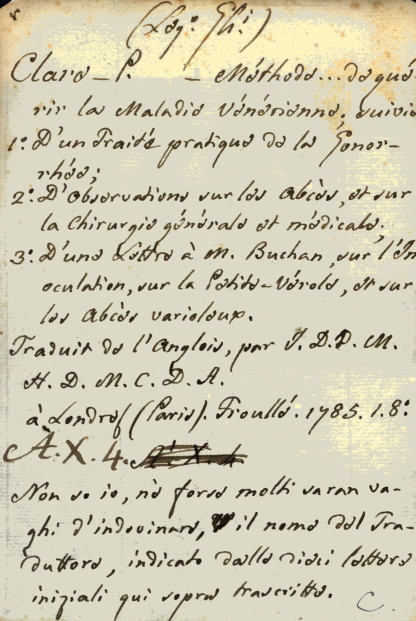 (Leg.º Gh.i)
Clare – P. – Méthode... de gué-
rir la Maladie Vénérienne, suivie
1.º D'un Traité pratique de la Gonor-
rhée;
2.º D'Observations sur les Abcès, et sur
la Chirurgie générale et médicale;
3.º D'une Lettre à M. Buchan, sur l'In
oculation, sur la Petite-Vérole, et sur
les Abcès varioleux.
Traduit de l'Anglois, par J. D. D. M.
H. D. M. C. D. A.
à Londres (Paris). Froullé. 1785. 8.º
À. X. 4.
Non so io, nè forse molti saran va-
ghi d'indovinare, il nome del Tra-
duttore, indicato dalle dieci lettere
iniziali qui sopra trascritte.
C.